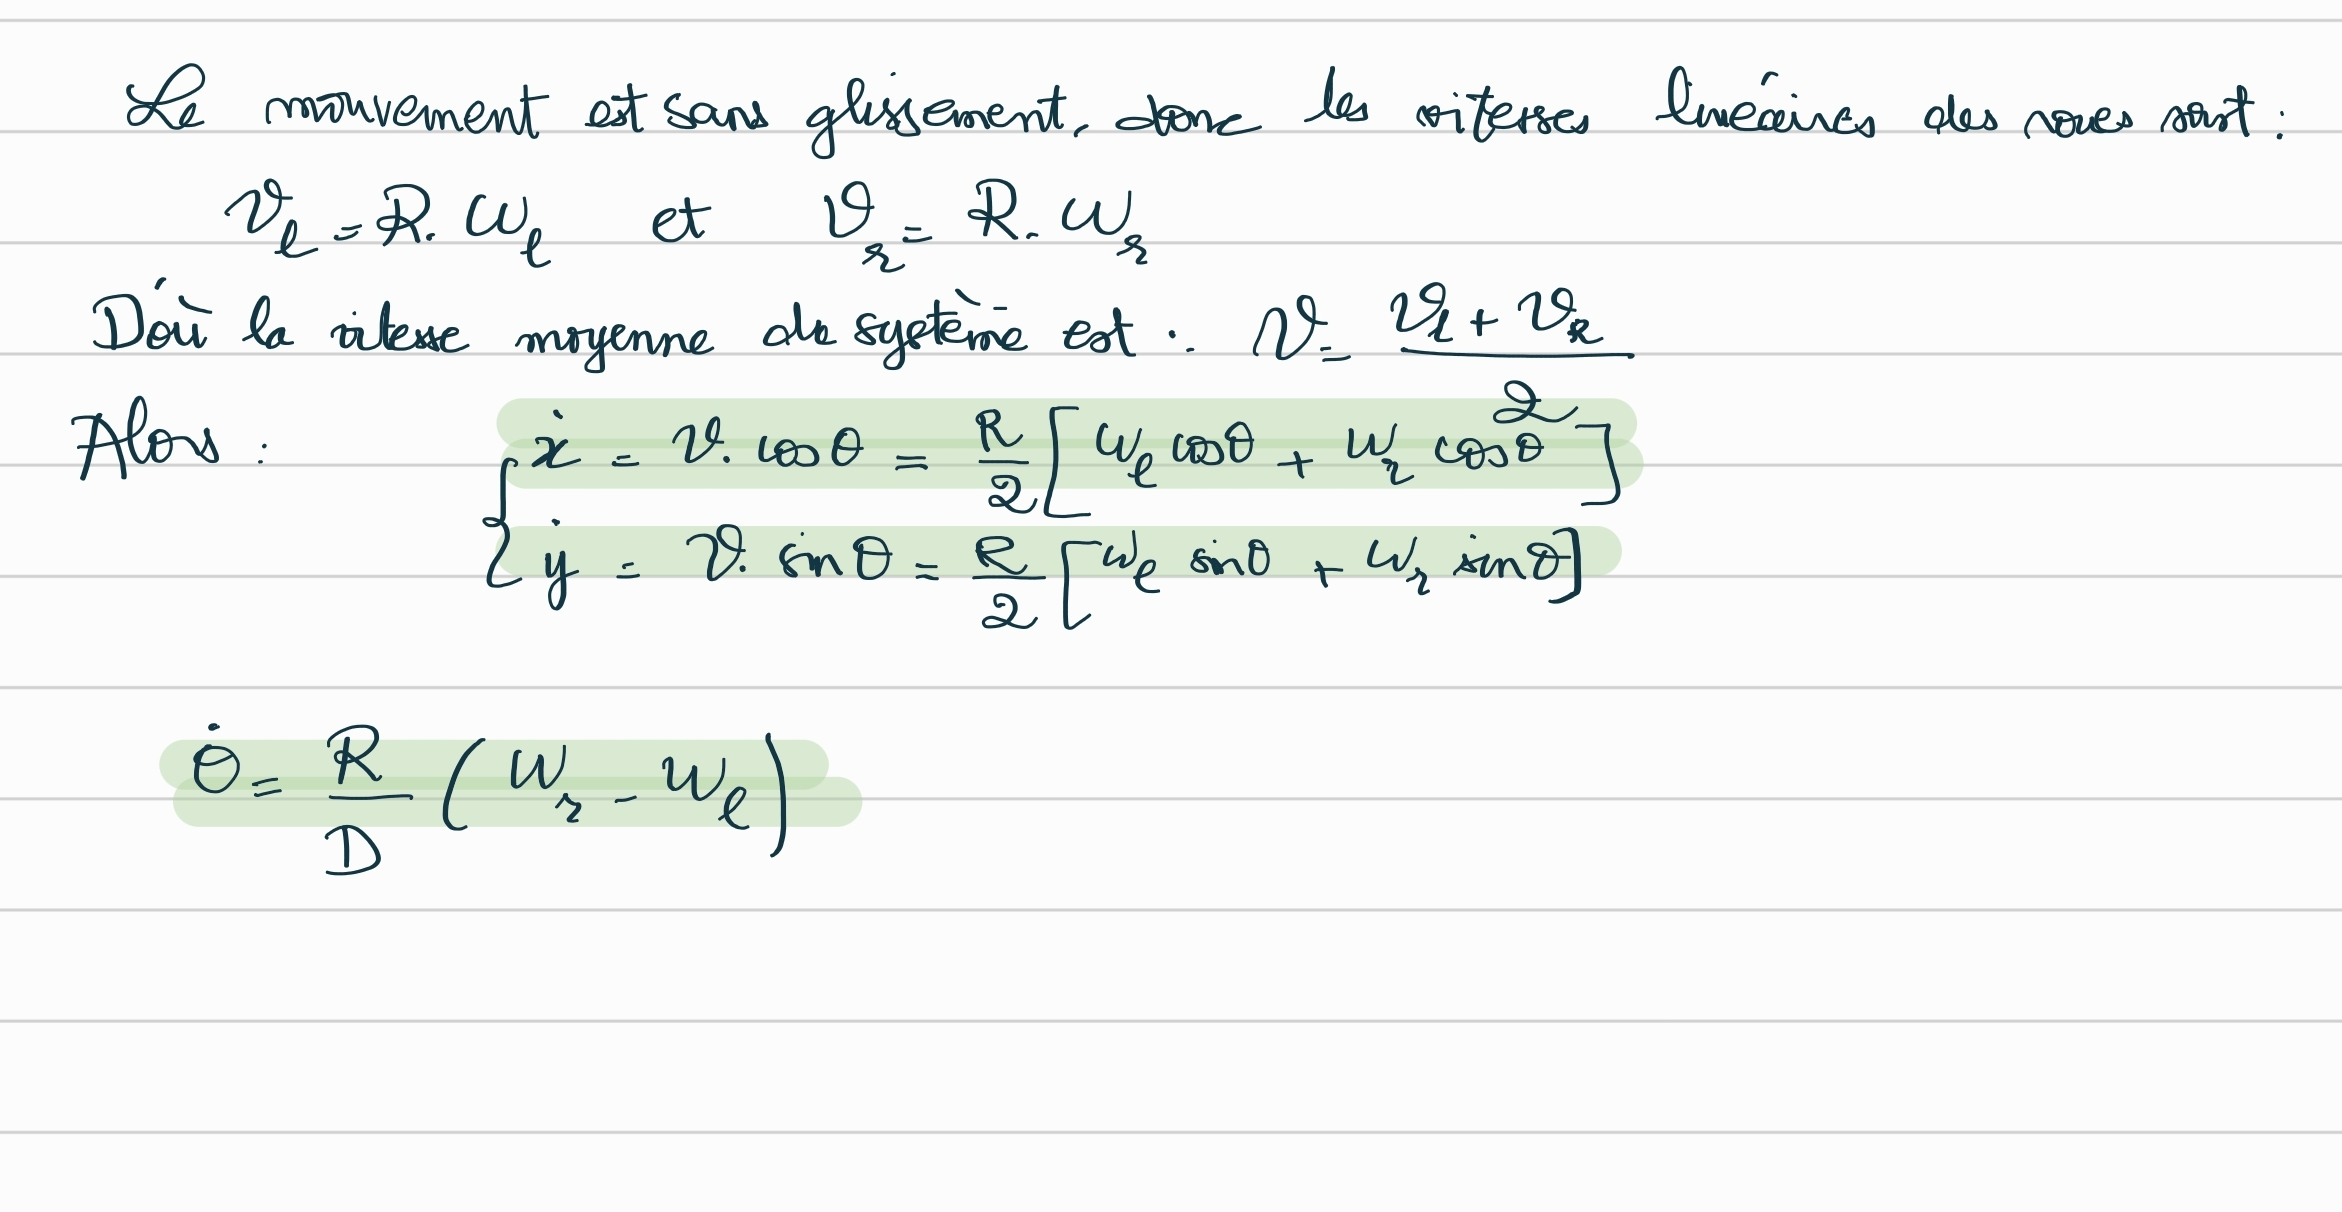 Le mouvement est sans glissement, donc les vitesses linéaires des roues sont :
v_l = R. ω_l et v_r = R. ω_r
D'où la vitesse moyenne du système est : v = (v_l + v_r) / 2
Alors : { ẋ = v. cos θ = R/2 [ω_l cos θ + ω_r cos θ]
ẏ = v. sin θ = R/2 [ω_l sin θ + ω_r sin θ]
θ̇ = R/D (ω_r - ω_l)